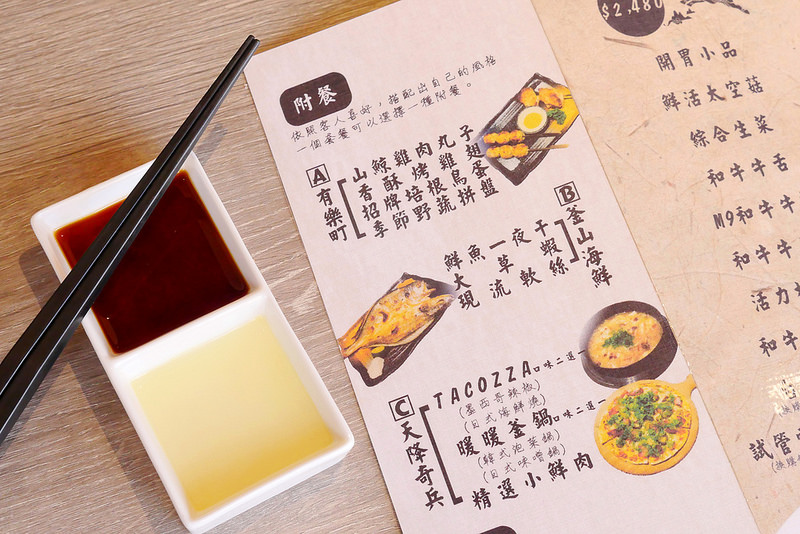 附餐
依照客人喜好，搭配出自己的風格
一個套餐可以選擇一種附餐。
A 有樂町
山鯨雞肉丸子
香酥烤雞翅
招牌培根鳥蛋
季節野蔬拼盤
B 釜山海鮮
鮮魚一夜干
大草蝦
現流軟絲
C 天降奇兵
TACOZZA口味二選一
(墨西哥辣椒)
(日式海鮮燒)
暖暖釜鍋口味二選一
(韓式泡菜鍋)
(日式味噌鍋)
精選小鮮肉
$2,480
開胃小品
鮮活太空菇
綜合生菜
和牛牛舌
M9和牛牛
和牛牛
活力
和牛
試管
(換購